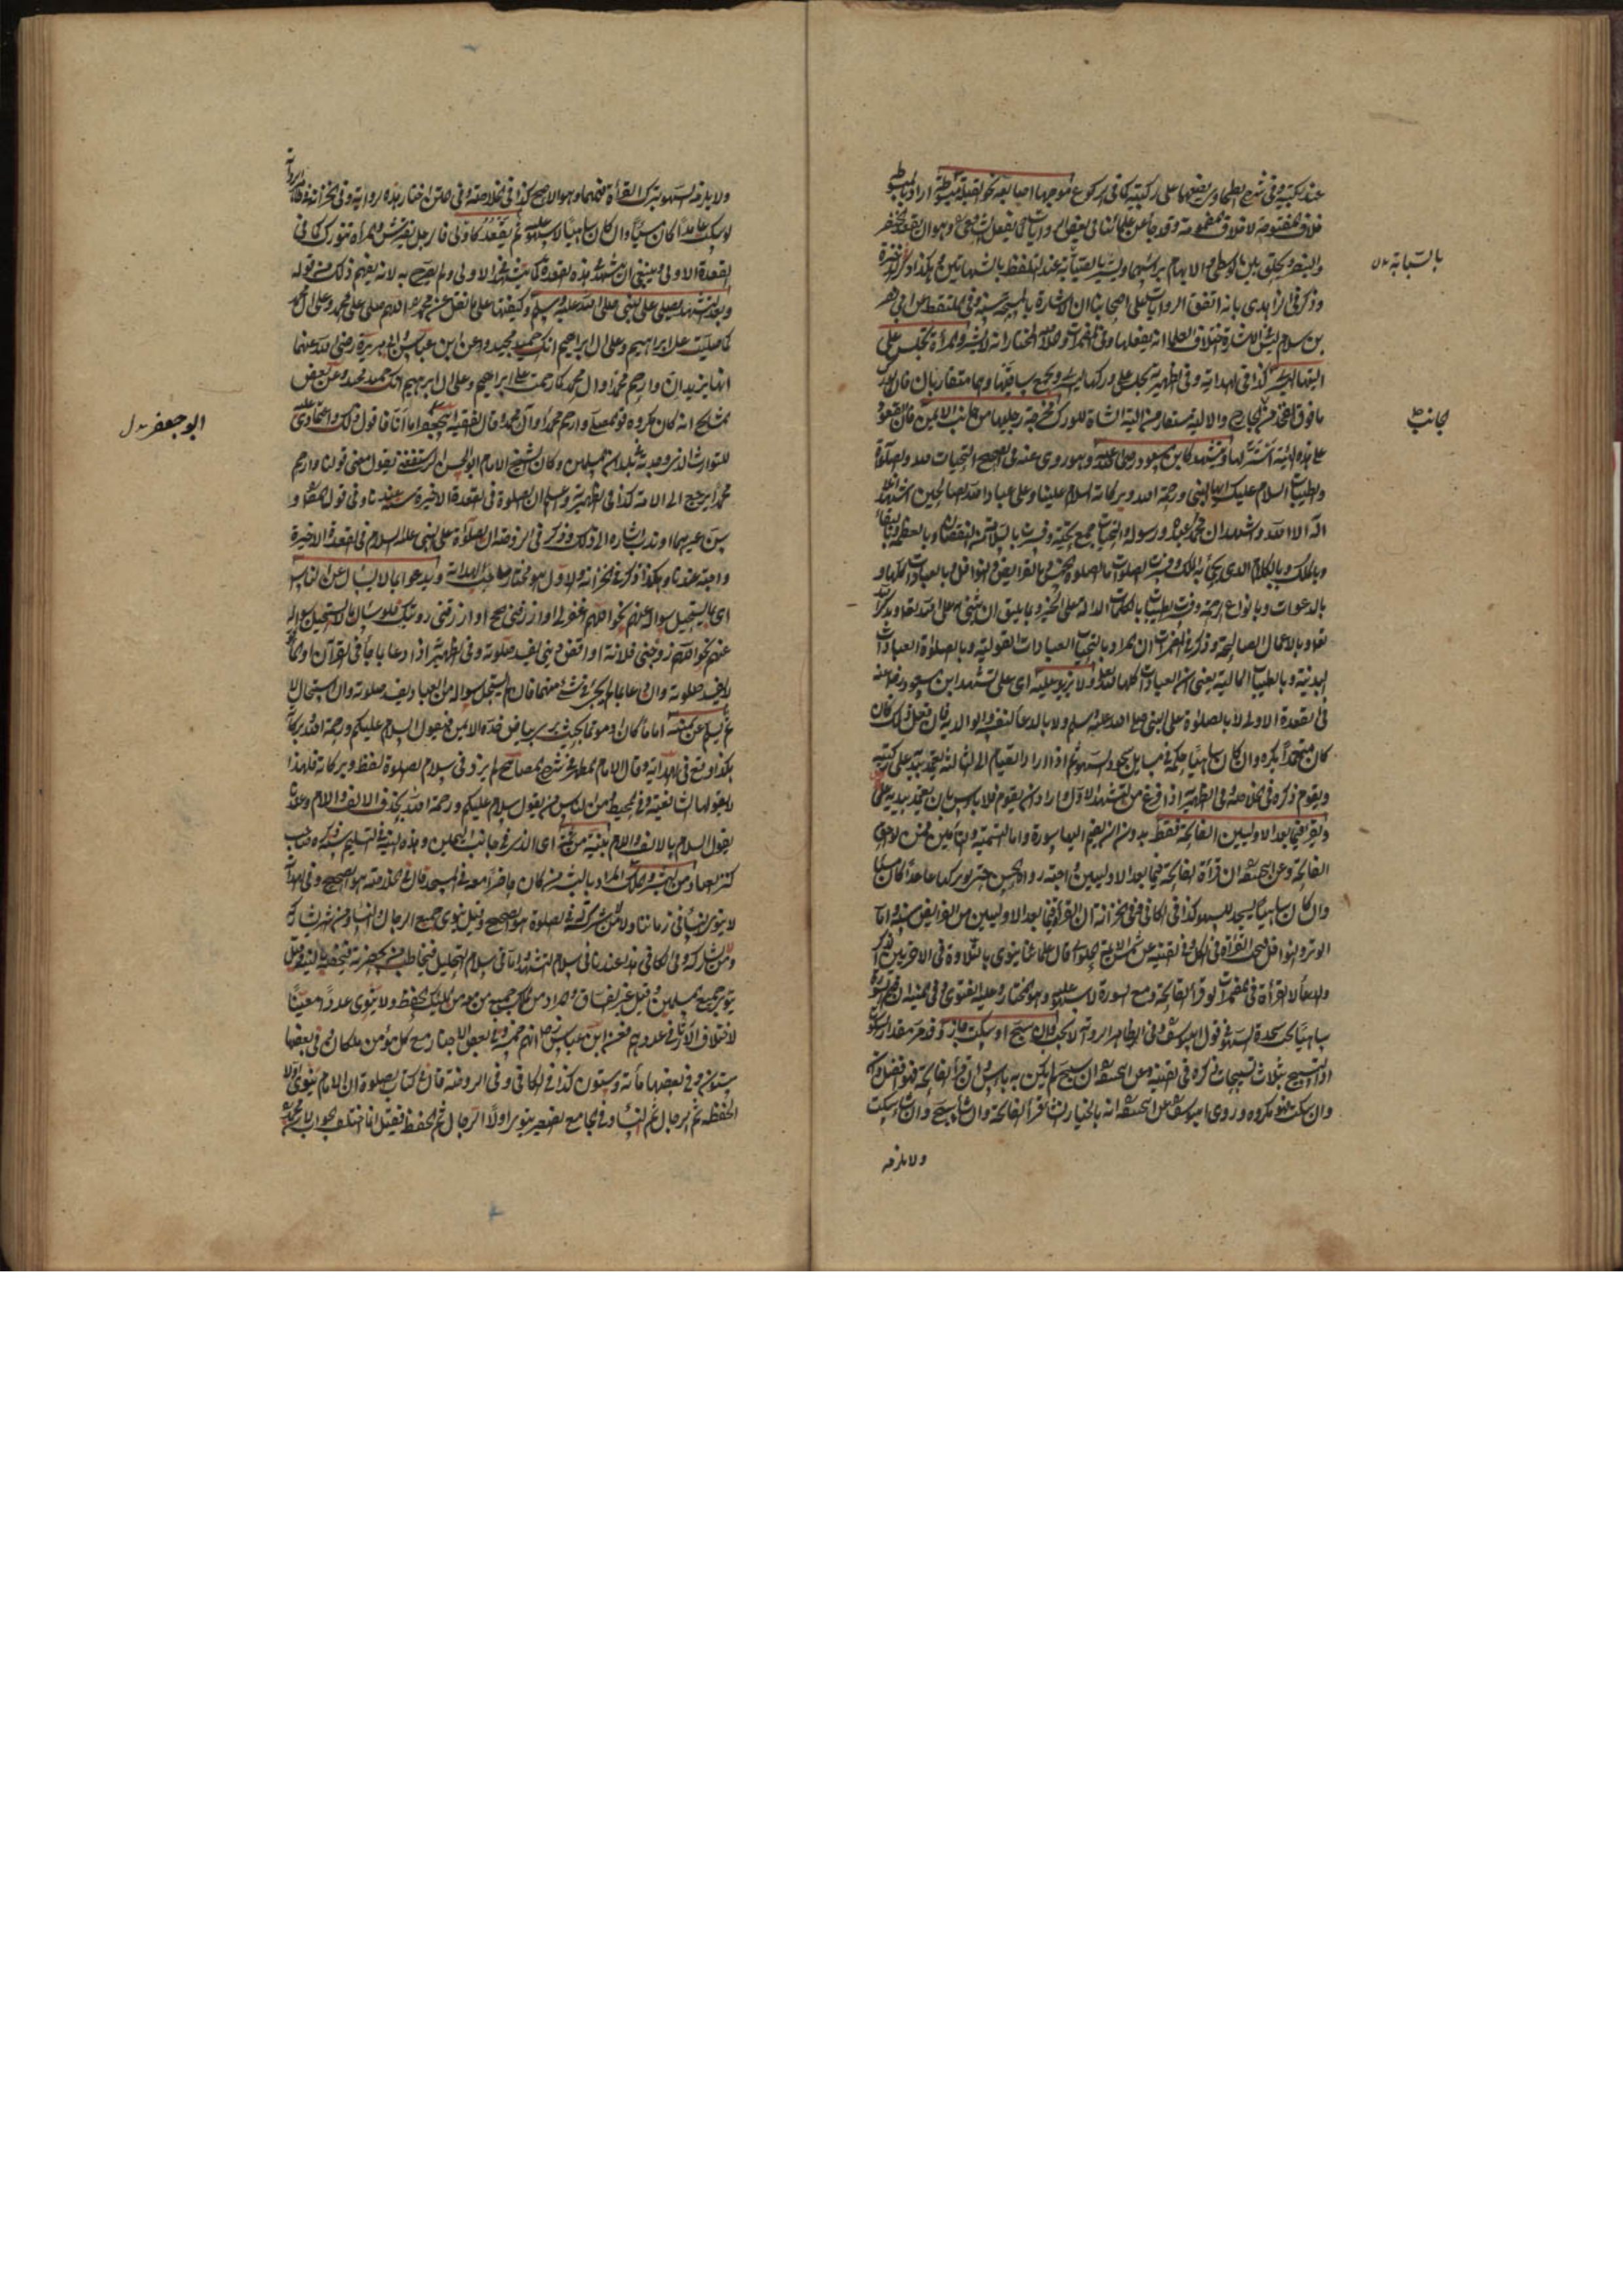 عند ركبتيه وفى شرح الطحاوى يضعهما على ركبتيه كما فى الركوع موجها اصابعه نحو القبلة مبسوطة اراد بالمبسوطة
خلاف المقبوضة لا خلاف المضمومة وقد جاء عن علمائنا فى بعض الروايات ان يفعل الشافعى وهو ان يعقد الخنصر
والبنصر ويحلق بين الوسطى والابهام برأسهما ويشير بالسبابة عند التلفظ بالشهادتين هكذا ذكر الذخيرة
وذكر فى الزاهدى بانه اتفق الروايات على اصحابنا ان الاشارة بالمسبحة سنة وفى الملتقط عن ابى نصر
بن سلام ليس الاشارة اختلاف العلماء انه يفعلها وفى المضمرات والخلاصة المختار انه لا يشير والمرأة تجلس على
اليتها اليسرى كذا فى الهداية وفى الظهيرية تجلس على وركها الايسر وتجمع ساقيها وهما متقاربان فان الورك
ما فوق الفخذ من الخارج والالية مستعار من الية الشاة للورك مخرجة رجليها من جانب الايمن فان القعود
على هذه الهيئة استر لها وتشهد كابن مسعود رضى الله عنه وهو روى عنه فى الصحيح التحيات لله والصلوات
والطيبات السلام عليك ايها النبى ورحمة الله وبركاته السلام علينا وعلى عباد الله الصالحين اشهد ان لا
اله الا الله واشهد ان محمدا عبده ورسوله والتحيات جمع تحية وفسرت بالسلامة من النقصان وبالعظمة وبالبقاء
وبالملك وبالكلام الذى يحيى به الملك وفسرت الصلوات بالصلوة الخمس وبالفرايض والنوافل بالعبادات كلها و
بالدعوات وبانواع الرحمة وفسرت الطيبات بالكلمات الدالة على الخير وبما يليق ان يثنى به على الله تعالى وبذكر الله
تعالى وبالاعمال الصالحة وذكر فى المضمرات ان المراد بالتحيات العبادات القولية وبالصلوات العبادات
البدنية وبالطيبات المالية يعنى ان العبادات كلها لله تعالى ولا يزيد عليه اى على تشهد ابن مسعود رضى عنه
فى القعدة الاولى لا بالصلوة على النبى صلى الله عليه وسلم ولا بالدعاء لنفسه ولوالديه فان فعل ذلك فان
كان متعمدا يكره وان كان ساهيا حكمه فى مسايل سجود السهو ثم اذا اراد القيام الى الثالثة لا يعتمد بيديه على ركبتيه
ويقوم ذكره فى الخلاصة وفى الظهيرية اذا فرغ من التشهد الاول واراد ان يقوم فلا بأس بان يعتمد بيديه على
ويقرأ فيما بعد الاوليين الفاتحة فقط بدون ان يضم اليها سورة واما التسمية والتأمين فمن لواحق
الفاتحة وعن ابى حنيفة ان قراءة الفاتحة فيما بعد الاوليين واجبة رواه الحسن حتى لو تركها عامدا كان مسيئا
وان كان ساهيا يسجد للسهو كذا فى الكافى وفى الخزانة ان القراءة فيما بعد الاوليين من الفرايض سنة واما
الوتر والنوافل فيجب القراءة فى الكل وفى القنية عن شمس الائمة الحلوانى قال علمائنا ينوى بالتلاوة فى الاخريين الذكر
والدعاء لا القراءة فى المضمرات لو قرأ الفاتحة ومع السورة لا سهو عليه وهو المختار وعليه الفتوى وفى المنية ان ضم السورة
ساهيا يجب سجدة السهو فى قول ابى يوسف وفى الظاهر الرواية لا يجب فان سبح او سكت جاز وقدره مقدار السكوت
او التسبيح بثلاث تسبيحات ذكره فى القنية وعن ابى حنيفة ان سبح لم يكن به بأس وان قرأ الفاتحة فهو افضل
وان سكت فهو مكروه وروى ابو يوسف عن ابى حنيفة انه بالخيار ان شاء قرأ الفاتحة وان شاء سبح وان شاء سكت
ولا يلزمه
بالسبابة
جانب
ولا يلزمه السهو بترك القراءة فيهما وهو الاصح كذا فى الخلاصة وفى المتن اختار هذه الرواية وفى الخزانة
لو سكت عامدا كان مسيئا وان كان ساهيا لا سهو عليه ثم يقعد كالاولى فالرجل يفترش والمرأة تتورك كما فى
القعدة الاولى وينبغى ان يتشهد هذه القعدة كما يتشهد فى الاولى ولم يصرح به لانه يفهم ذلك من قوله
وبعد التشهد يصلى على النبى صلى الله عليه وسلم وكيفيتها على ما نقل عن محمد اللهم صلى على محمد وعلى ال محمد
كما صليت على ابراهيم وعلى ال ابراهيم انك حميد مجيد وعن ابن عباس وابى هريرة رضى الله عنهما
انهما يزيدان وارحم محمدا وال محمد كما رحمت على ابراهيم وعلى ال ابراهيم انك حميد مجيد وعن بعض
المشايخ انه كان يكره قول المصلى وارحم محمدا وآل محمد قال الفقيه ابو جعفر اما انا فاقول ذلك واعتمادى
للتوارث الذى وجدته فى بلدان المسلمين وكان الشيخ الامام ابو الحسن الرستغفنى يقول معنى قولنا وارحم
محمدا يرجع الى الامة كذا فى الظهيرية واعلم ان الصلوة فى القعدة الاخيرة سنة عندنا وفى قول المص و
سن غيرهما او ندب اشارة الى ذلك وذكر فى الروضة ان الصلوة على النبى عليه السلام فى القعدة الاخيرة
واجبة عندنا وهكذا ذكر فى الخزانة والاول هو مختار صاحب الهداية ويدعو بما لا يسأل من الناس
اى ما يستحيل سؤاله عنهم نحو اللهم اغفر لى او ارزقنى الحج او ارزقنى رؤيتك فلو سأل ما لا يستحيل سؤاله
عنهم نحو اللهم زوجنى فلانة او اقض دينى يفسد صلوته وفى الظهيرية اذا دعا بما جاء فى القرآن او بمعناه
لا يفسد صلوته وان دعا بما لم يجئ فى شئ منهما فان لم يستحل سؤاله من العباد يفسد صلوته وان استحال لا
ثم يسلم عن يمينه اماما كان او مؤتما بحيث يرى بياض خده الايمن فيقول السلام عليكم ورحمة الله وبركاته
هكذا وقع فى الهداية وقال الامام المطهر فى شرح المصابيح لم يزد فى سلام الصلوة لفظ وبركاته فلهذا
لا يقولها الشافعية وفى المحيط ومن الناس من يقول سلام عليكم ورحمة الله بحذف الالف واللام وعندنا
يقول السلام بالالف واللام بنية من ثمة اى الذى فى جانب اليمين وهذه النية فى التسليم سنة ذكره صاحب
كنز العباد من البشر والملك المراد بالبشر من كان حاضرا معه فى المسجد قال فى الخلاصة هو الصحيح وفى الهداية
لا ينوى النساء فى زماننا ولا من لا شركة له فى الصلوة هو الصحيح وقيل ينوى جميع الرجال والنساء ومن شاركه
ومن لا يشاركه وفى الكافى هذا عندنا فى سلام التشهد اما فى سلام التحليل فيخاطب من بحضرته فيخصه بالنية وقيل
ينوى جميع المسلمين وقيل غير الفساق والمراد من الملك جميع من معه من الملائكة الحفظة ولا ينوى عددا معينا
لاختلاف الآثار فى عددهم فعن ابن عباس انهم خمسة وفى بعض الاخبار مع كل مؤمن ملكان وفى بعضها
ستون وفى بعضها مائة وستون كذا فى الكافى وفى الروضة قال فى كتاب الصلوة ان الامام ينوى اولا
الحفظة ثم الرجال ثم النساء وفى الجامع الصغير ينوى اولا الرجال ثم الحفظة فقيل انما اختلف جواب محمد
ابو جعفر